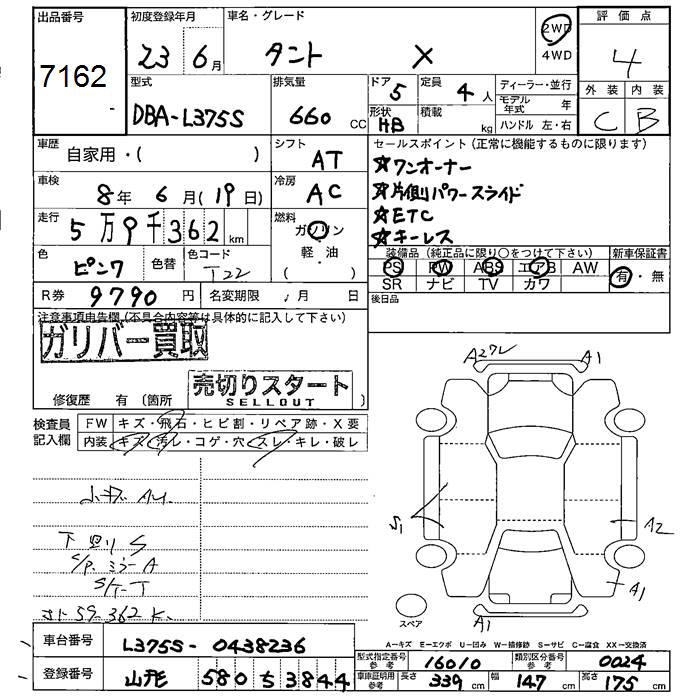 出品番号
7162
初度登録年月
23 6月
車名・グレード
タント X
2WD
4WD
評価点
4
外装 内装
C B
型式
DBA-L375S
排気量
660 CC
ドア 5
形状 HB
定員 4人
積載 kg
ディーラー・並行
モデル年式 年
ハンドル 左・右
車歴
自家用・( )
シフト
AT
車検
8年 6月(19日)
冷房
AC
走行
5万9千362km
燃料
ガソリン
・
軽油
( )
色
ピンク
色替
色コード
T22
R券 9790円
名変期限 月 日
セールスポイント(正常に機能するものに限ります)
☆ワンオーナー
☆片側パワースライド
☆ETC
☆キーレス
装備品(純正品に限り○をつけて下さい)
PS PW ABS エアB AW
SR ナビ TV カワ
新車保証書
有・無
後日品
注意事項申告欄(不具合内容等は具体的に記入して下さい)
ガリバー買取
売切りスタート
SELLOUT
修復歴 有(箇所 )
検査員
記入欄
FW キズ・飛石・ヒビ割・リペア跡・X要
内装 キズ・汚レ・コゲ・穴・スレ・キレ・破レ
小キズ AU.
下回り S
S/P. ミラーA
S/T-T
59-362K.
A2ワレ A1
S1
A2
A1
A1
スペア
A-キズ E-エクボ U-凹み W-補修跡 S-サビ C-腐食 XX-交換済
車台番号
L375S-0438236
登録番号
山形 580 ち 3844
型式指定番号
参考
16010
類別区分番号
参考
0024
車検証明用
参考
長さ 339 cm
幅 147 cm
高さ 175 cm